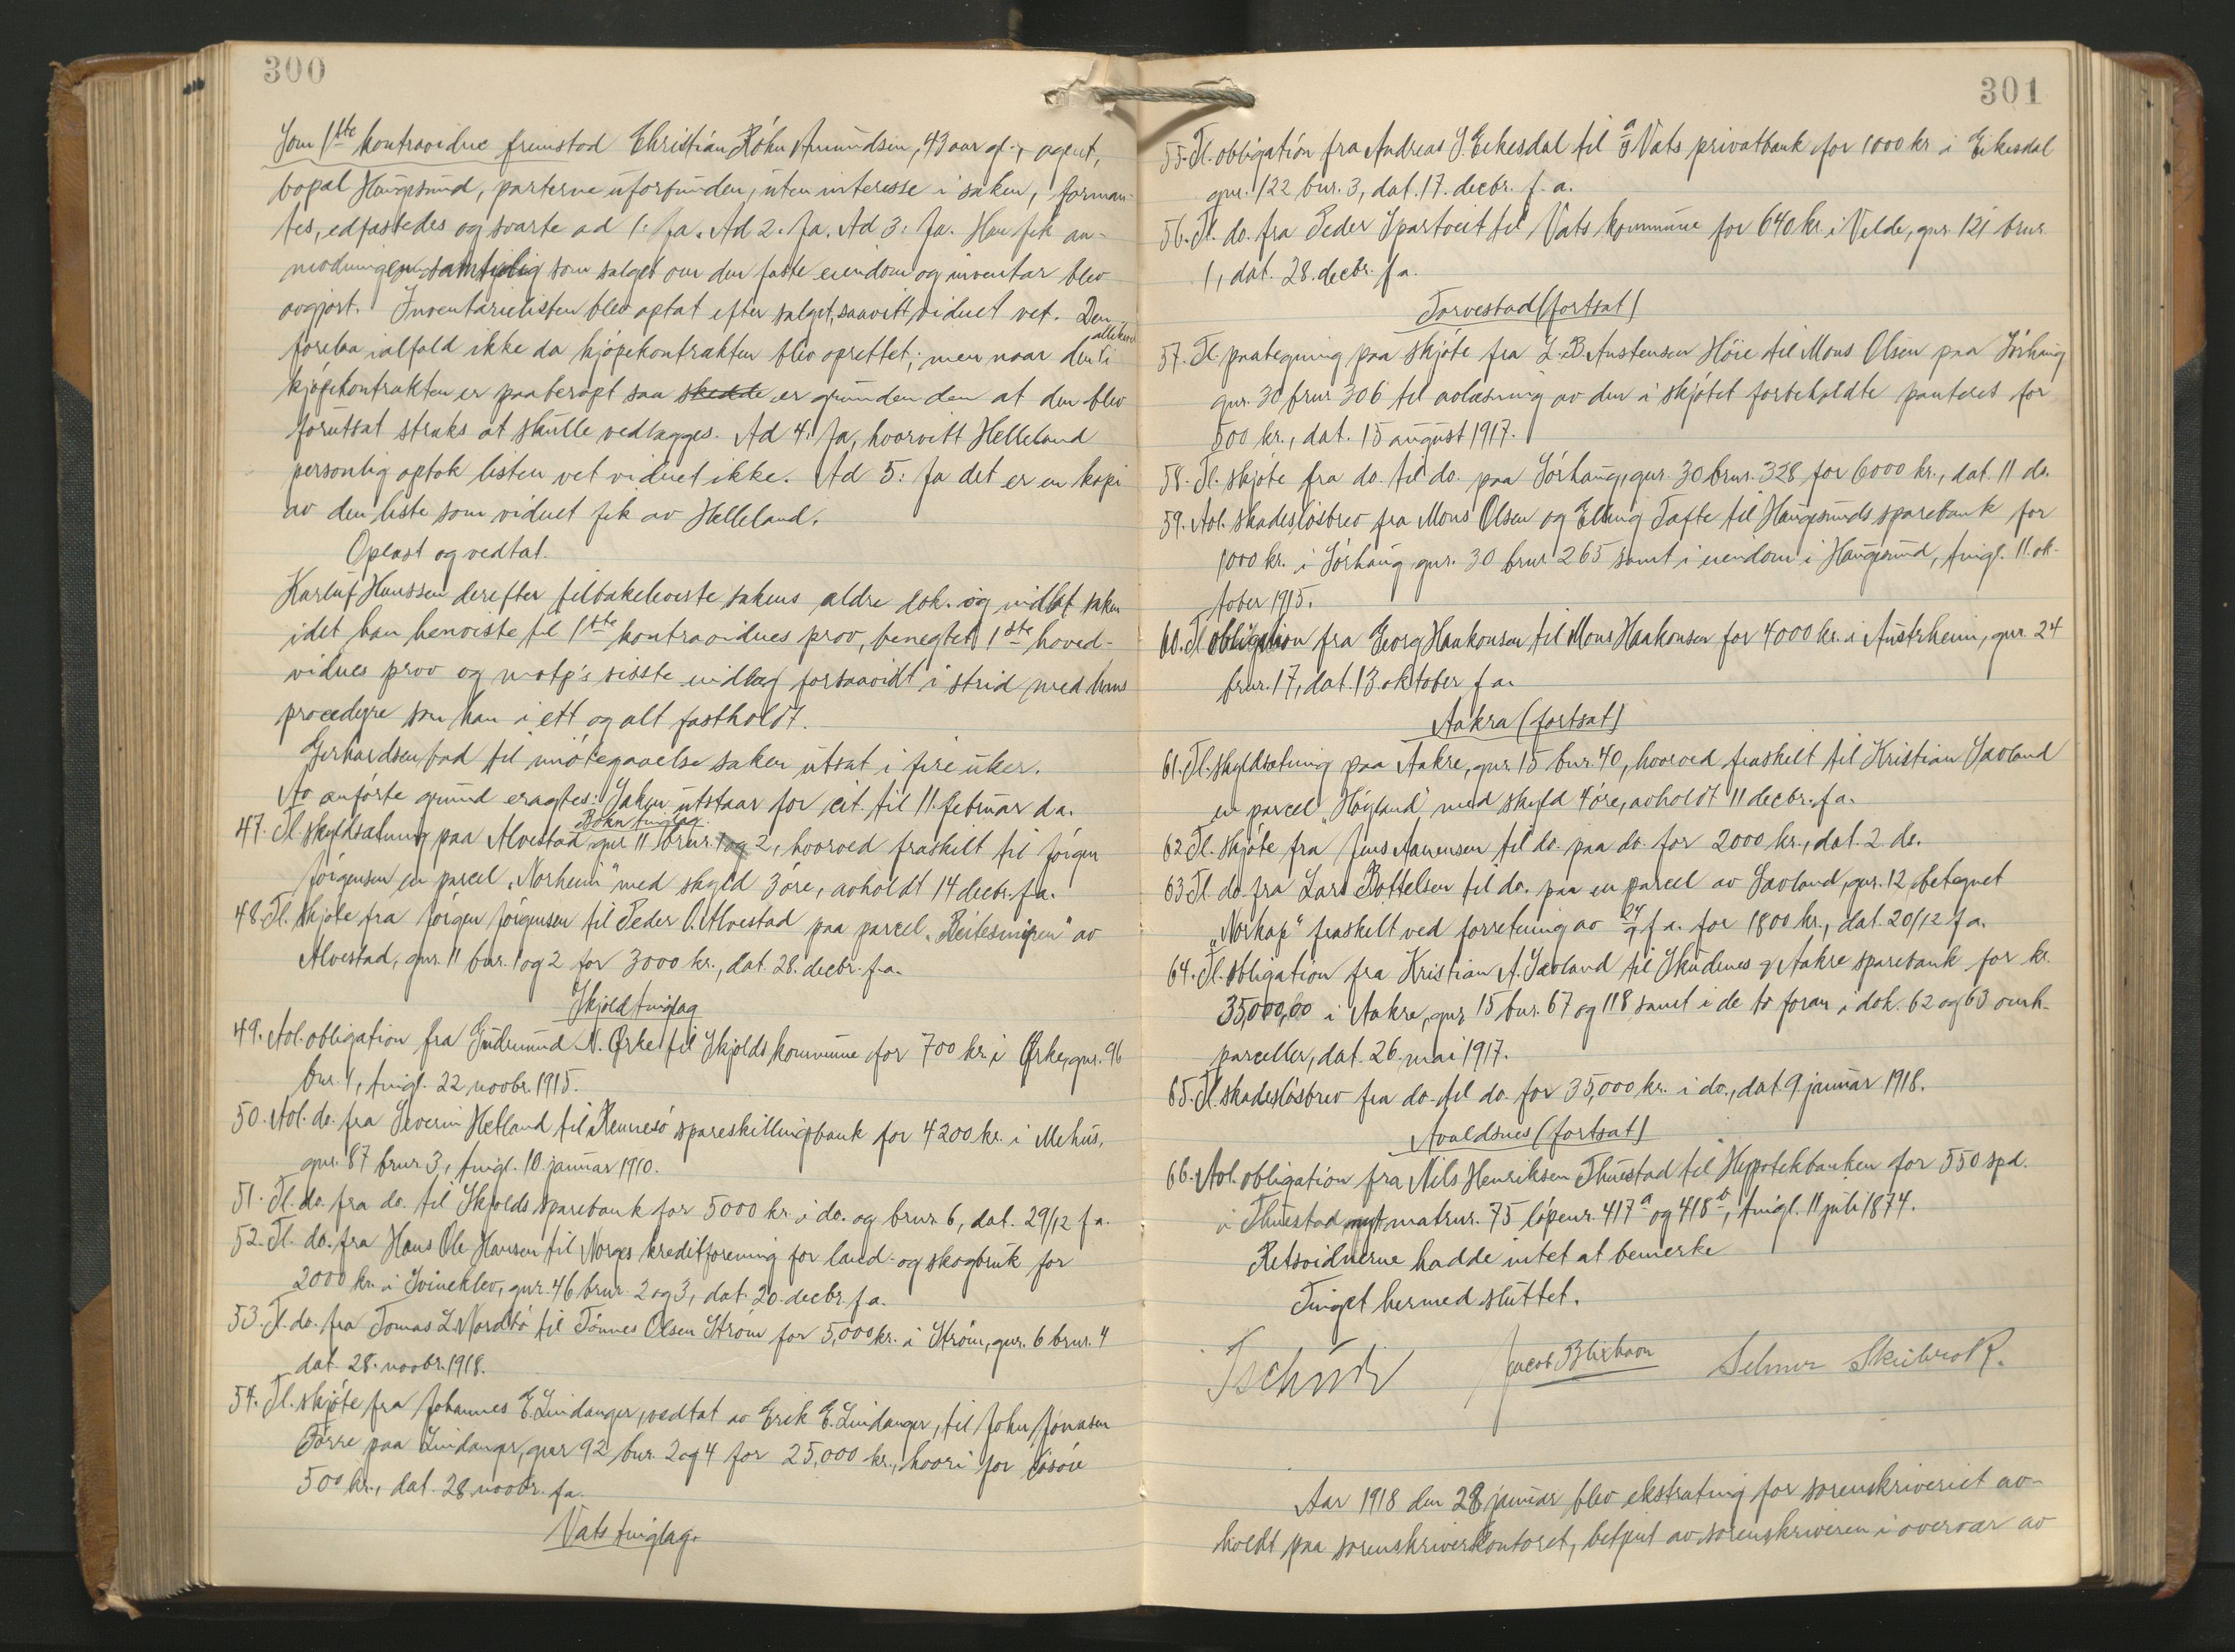 300
Som 1ste kontravidne fremstod Christian Røhn Amundsen, 43 aar gl., agent,
bopæl Haugesund, parterne uforbunden, uten interesse i saken, forman-
tes, edfæstedes og svarte ad 1: Ja. Ad 2. Ja. Ad 3: Ja. Han fik an-
modningen samtidig som salget om den faste eiendom og inventar blev
avgjort. Inventarielisten blev optat efter salget, saavitt vidnet vet. Den
forelaa ialfald ikke da kjøpekontrakten blev oprettet; men naar den allikevel i
kjøpekontrakten er paaberopt saa skedde er grunden den at den blev
forutsat straks at skulle vedlægges. Ad 4: Ja, hvorvitt Helleland
personlig optok listen vet vidnet ikke. Ad 5: Ja det er en kopi
av den liste som vidnet fik av Helleland.
Oplæst og vedtat.
Karluf Hanssen derefter tilbakeleverte sakens ældre dok. og indlot saken
idet han henviste til 1ste kontravidnes prov, benegtet 1ste hoved-
vidnes prov og motp's sisste indlæg forsaavidt i strid med hans
procedyre som han i ett og alt fastholdt.
Gerhardsen bad til imøtegaaelse saken utsat i fire uker.
Av anførte grund eragtes: Saken utstaar for cit. til 11. februar d.a.
Bokn tinglag.
47. Tl. skyldsætning paa Alvestad gnr 11 brnr. 1 og 2, hvorved fraskilt til Jørgen
Jørgensen en parcel „Norheim" med skyld 3 øre, avholdt 14 decbr. f.a.
48. Tl. skjøte fra Jørgen Jørgensen til Peder O. Alvestad paa parcel „Reitesmyren" av
Alvestad, gnr. 11 bnr. 1 og 2 for 3000 kr., dat. 28. decbr. f.a.
Skjold tinglag
49. Avl. obligation fra Gudmund N. Ørke til Skjolds kommune for 700 kr. i Ørke, gnr. 96
bnr. 4, tingl. 22 novbr. 1915.
50. Avl. do. fra Severin Hetland til Rennesø spareskillingsbank for 4200 kr. i Mehus,
gnr. 87 brnr 3, tingl. 10. januar 1910.
51. Tl. do. fra do. til Skjolds sparebank for 5000 kr. i do. og brnr 6, dat. 29/12 f.a.
52. Tl. do. fra Hans Ole Hansen til Norges kreditforening for land- og skogbruk for
2000 kr. i Svineklev, gnr. 46 brnr. 2 og 3, dat. 20. decbr. f.a.
53. Tl. do. fra Tomas L. Nordbø til Tønnes Olsen Strøm for 5,000 kr. i Strøm, gnr. 6 brnr. 4
dat. 28. novbr. 1918.
54. Tl. skjøte fra Johannes E. Lindanger, vedtat av Erik E. Lindanger, til John Jonasen
Førre paa Lindanger, gnr 92 bnr. 2 og 4 for 25,000 kr., hvori for løsøre
500 kr., dat. 28 novbr. f.a.
Vats tinglag.
301
55. Tl. obligation fra Andreas J. Eikesdal til a/s Vats privatbank for 1000 kr. i Eikesdal
gnr. 122 bnr. 3, dat. 17. decbr. f.a.
56. Tl. do. fra Peder Spartveit til Vats kommune for 640 kr. i Velde, gnr. 121 brnr.
1, dat. 28. decbr. f.a.
Torvestad (fortsat)
57. Tl. paategning paa skjøte fra L. B. Austensen Høie til Mons Olsen paa Sørhaug
gnr. 30 brnr 306 til avlæsning av den i skjøtet forbeholdte panteret for
500 kr., dat. 15 august 1917.
58. Tl. skjøte fra do. til do. paa Sørhaug, gnr. 30 brnr. 328 for 6000 kr., dat. 11 ds.
59. Avl. skadesløsbrev fra Mons Olsen og Elling Tafte til Haugesunds sparebank for
1000 kr. i Sørhaug gnr. 30 brnr 265 samt i eiendom i Haugesund, tingl. 11. ok-
tober 1915.
60. Tl. obligation fra Georg Haakonsen til Mons Haakonsen for 4000 kr. i Austrheim, gnr. 24
brnr. 17, dat. 13 oktober f.a.
Aakra (fortsat)
61. Tl. skyldsætning paa Aakre, gnr. 15 bnr. 40, hvorved fraskilt til Kristian Sævland
en parcel „Høgland" med skyld 4 øre, avholdt 11 decbr. f.a.
62 Tl. skjøte fra Jens Aanensen til do. paa do. for 2000 kr., dat. 2. ds.
63 Tl. do. fra Lars Bottelsen til do. paa en parcel av Sævland, gnr. 12 betegnet
„Norkap" fraskilt ved forretning av 24/9 f.a. for 1800 kr., dat. 20/12 f.a.
64. Tl. obligation fra Kristian A. Sævland til Skudenes og Aakre sparebank for kr.
35,000,00 i Aakre, gnr 15 bnr. 67 og 118 samt i de to foran i dok. 62 og 63 omh.
parceller, dat. 26. mai 1917.
65. Tl. skadesløsbrev fra do. til do. for 35,000 kr. i do., dat. 9 januar 1918.
Avaldsnes (fortsat)
66. Avl. obligation fra Nils Henriksen Thuestad til Hypotekbanken for 550 spd.
i Thuestad, nyt matrnr. 75 løpenr. 417a og 418b, tingl. 11 juli 1874.
Retsvidnerne hadde intet at bemerke
Tinget hermed sluttet.
Tschudi Jacob Blixhavn Selmer Skeibrok.
Aar 1918 den 28 januar blev ekstrating for sorenskriveriet av-
holdt paa sorenskriverkontoret, betjent av sorenskriveren i overvær av